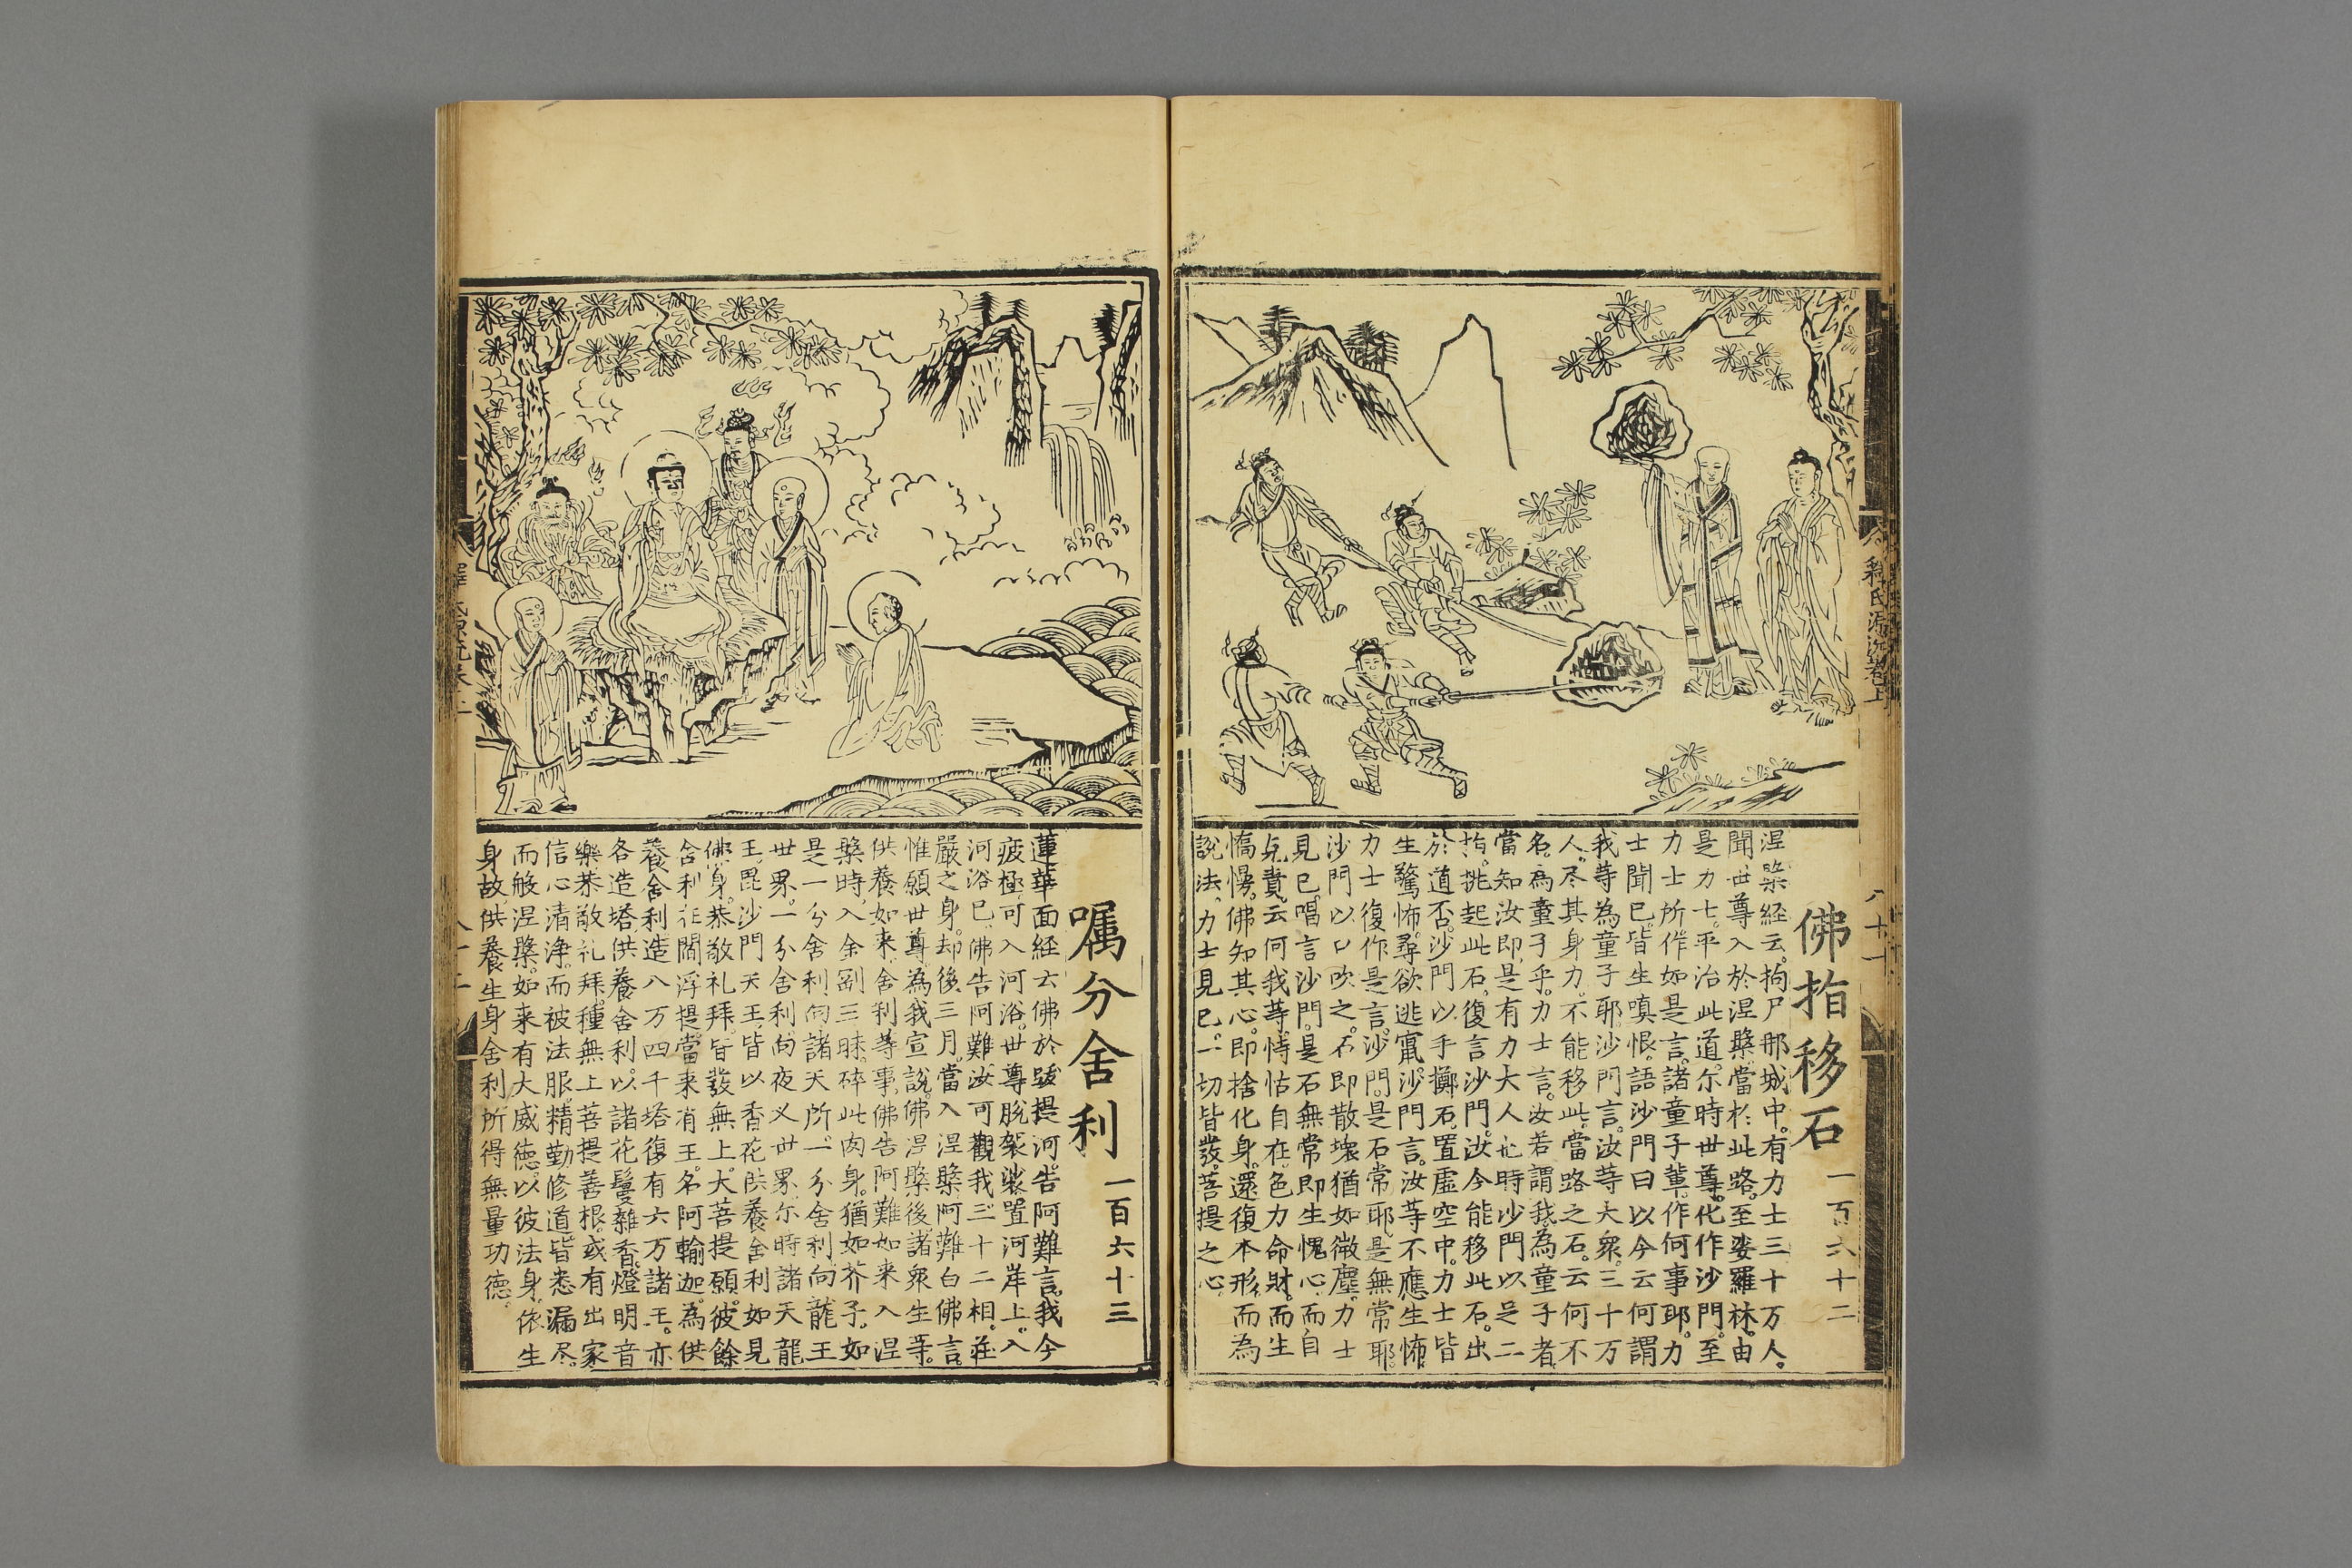 佛指移石 一百六十二
涅槃経云。拘尸那城中。有力士三十万人。
聞世尊入於涅槃。當於此路。至娑羅林。由
是力士。平治此道。尔時世尊。化作沙門。至
力士所。作如是言。諸童子輩。作何事耶。力
士聞已。皆生嗔恨。語沙門曰以今云何謂
我等為童子耶。沙門言。汝等大衆。三十万
人。尽其身力。不能移此。當路之石。云何不
名。為童子乎。力士言。汝若謂我為童子者
當知汝即是有力大人。尔時沙門以足二
指。挑起此石。復言沙門。汝今能移此石。出
於道否。沙門以手擲石。置虛空中。力士皆
生驚怖。尋欲逃竄。沙門言。汝等不應生怖。
力士復作是言。沙門。是石常耶。是無常耶。
沙門以口吹之。石即散壞猶如微塵。力士
見已。唱言沙門。是石無常即生愧心。而自
尅責。云何我等。恃怙自在。色力命財。而生
憍慢。佛知其心。即捨化身。還復本形。而為
說法。力士見已。一切皆發。菩提之心。
釋氏源流卷上
八十一
嘱分舍利 一百六十三
蓮華面経云佛於跋提河。告阿難言。我今
疲極。可入河浴。世尊脫袈裟。置河岸上。入
河浴已。佛告阿難。汝可觀我三十二相。莊
嚴之身。却後三月。當入涅槃。阿難白佛言。
惟願世尊。為我宣說。佛涅槃後。諸衆生等。
供養如来舍利等事。佛告阿難如来入涅
槃時。入金剛三昧。碎此肉身。猶如芥子。如
是一分舍利。向諸天所。一分舍利。向龍王
世界。一分舍利。向夜叉世界。尔時諸天龍
王。毘沙門天王。皆以香花供養舍利如見
佛身。恭敬礼拜。皆發無上。大菩提願。彼餘
舍利在閻浮提。當来有王。名阿輸迦。為供
養舍利造八万四千塔。復有六万諸王。亦
各造塔。供養舍利。以諸花鬘雜香。燈明音
樂。恭敬礼拜。種無上菩提善根。或有出家
信心清淨。而被法服。精勤修道。皆悉漏尽。
而般涅槃。如来有大威德。以彼法身。依生
身故。供養生身舍利所得無量功德。